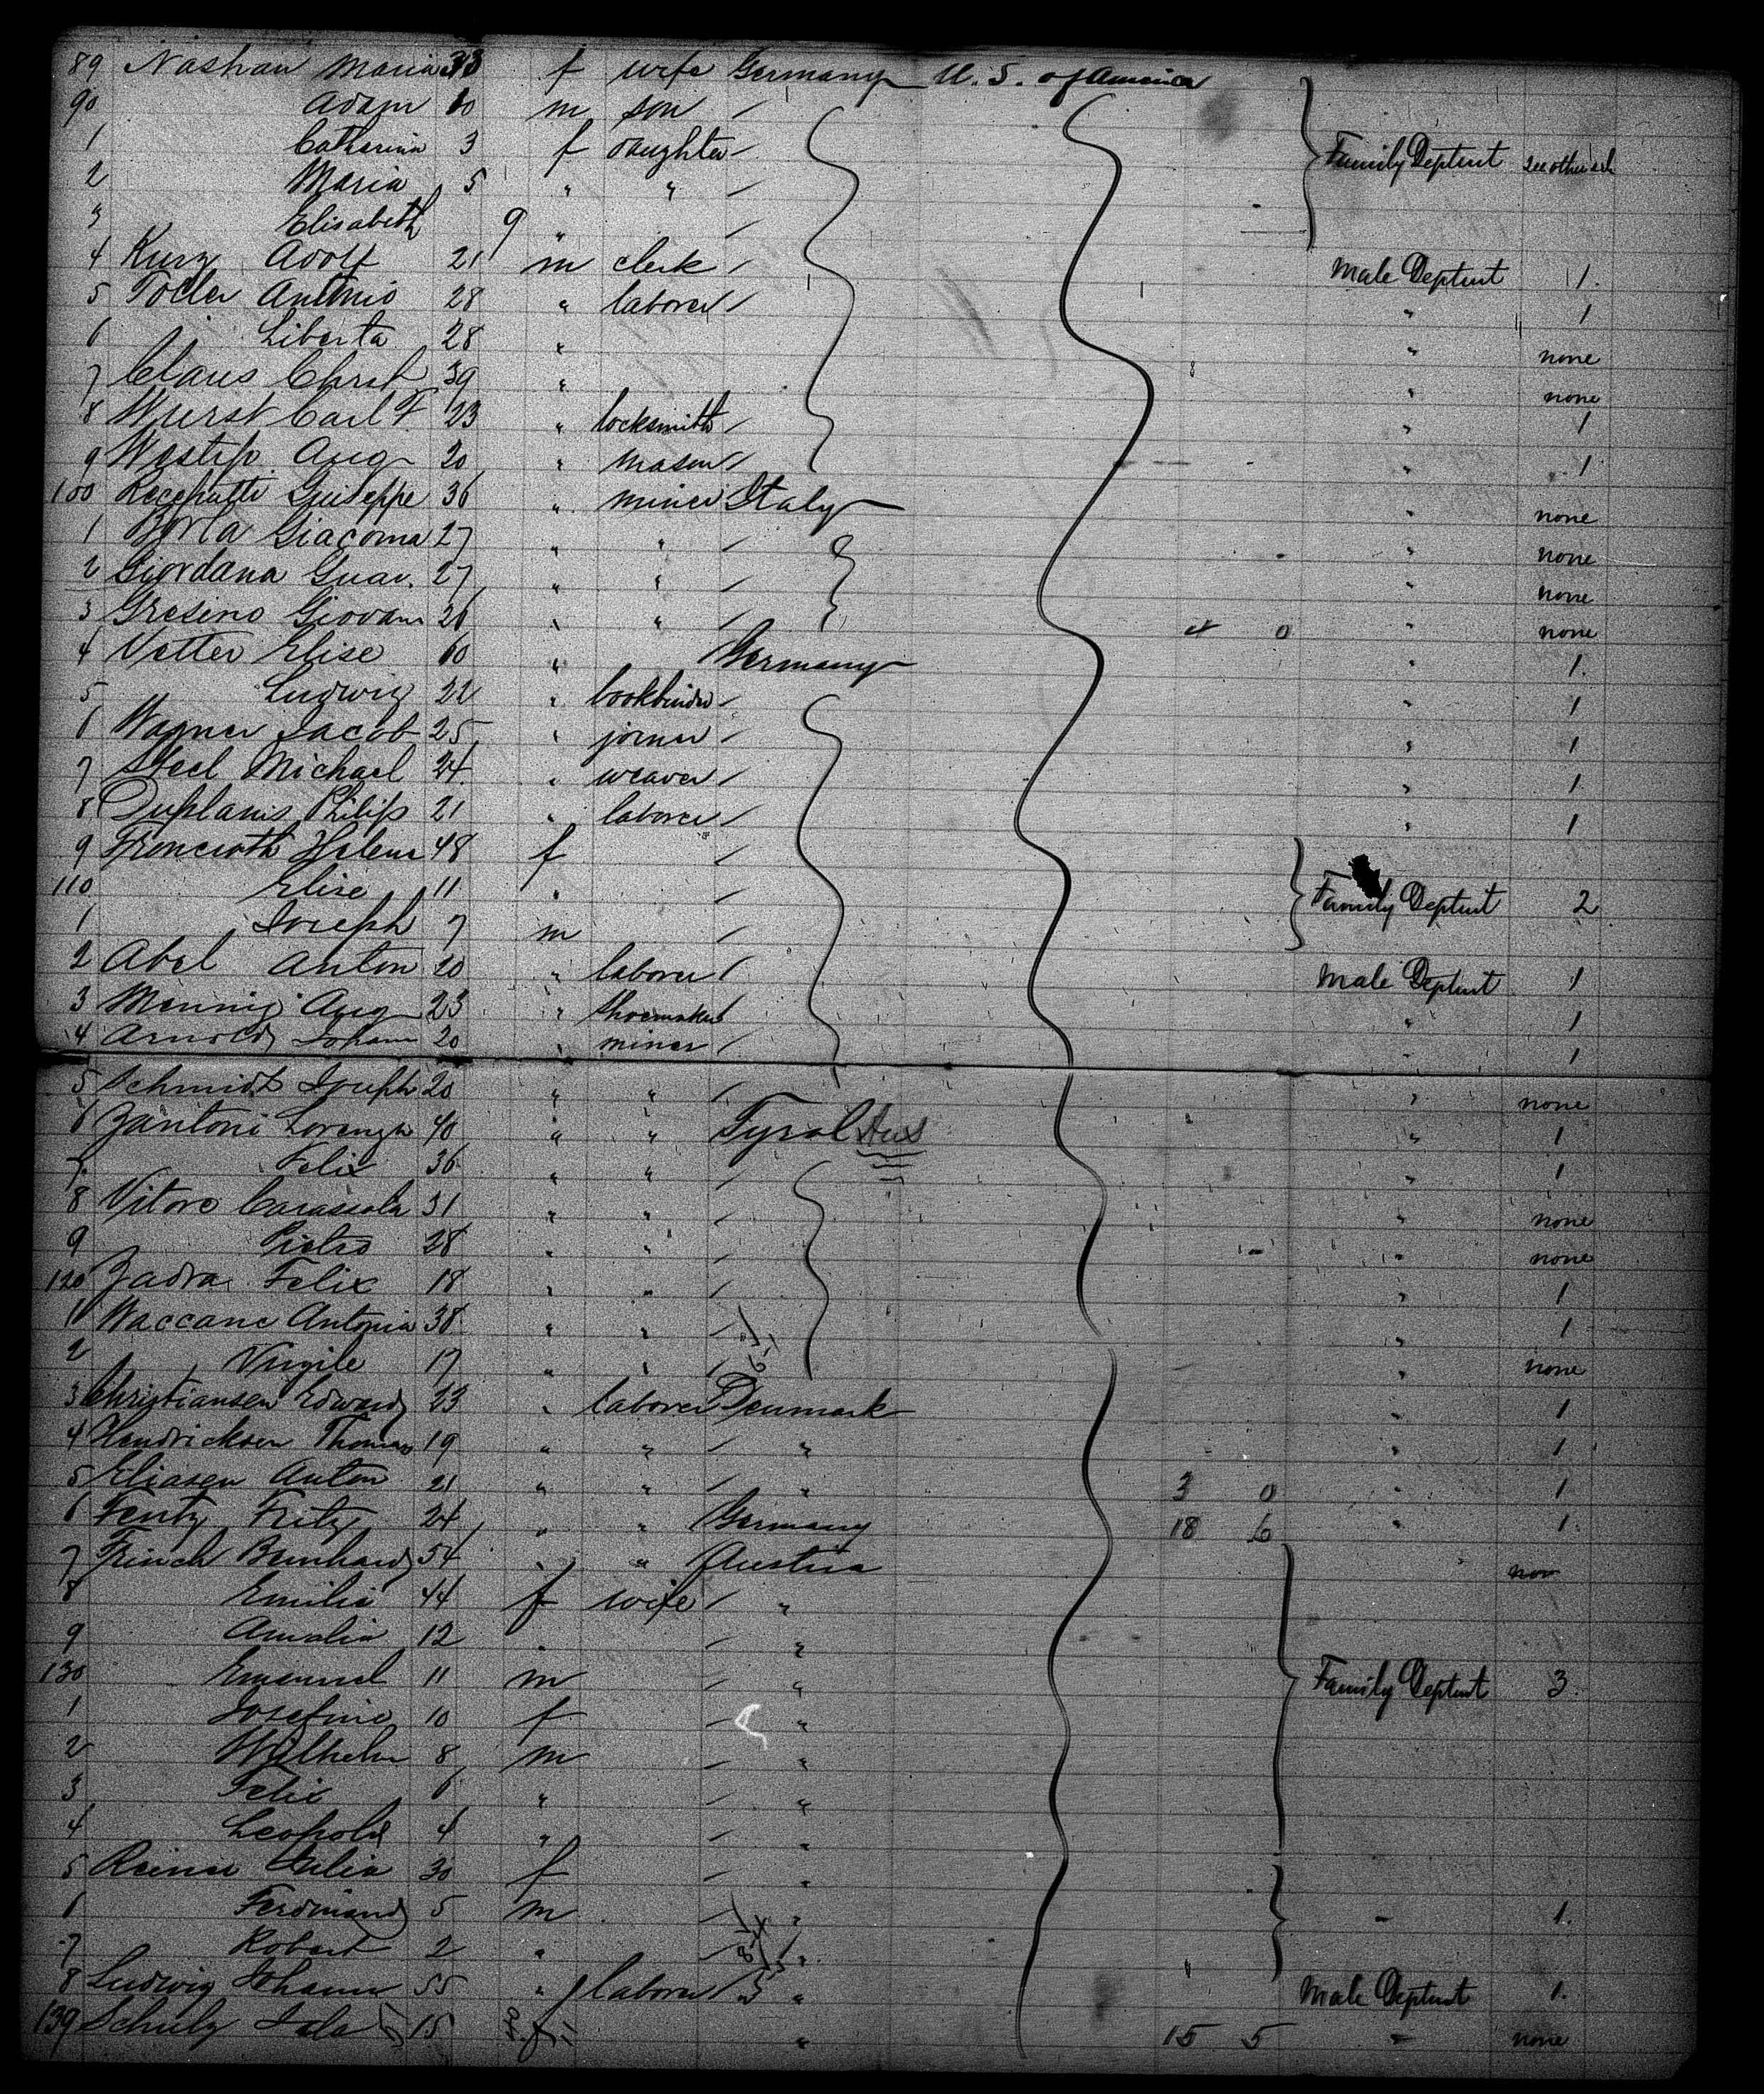 89 Nashan Maria 33 f wife Germany U. S. of America
90 Adam 10 m son /
1 Catharina 3 f daughter / Family Deptmt see other sch
2 Maria 5 " " /
3 Elisabeth 9 " /
4 Kurz Adolf 21 m clerk / Male Deptmt 1.
5 Antonio 28 " laborer / " 1
6 Liberta 28 " " none
7 Claus Christ 39 " " none
8 Wurst Carl F. 23 " locksmith / " 1
9 Aug 20 " mason / " 1
100 Guiseppe 36 " miner Italy " none
1 Giacoma 27 " " / " none
2 Giordana 27 " " / " none
3 Gresino Giovani 26 " " / 4 0 " none
4 Vetter Elise 60 " Germany " 1.
5 Ludwig 22 " bookbinder / " 1
6 Wagner Jacob 25 " joiner / " 1
7 Steel Michael 24 " weaver / " 1
8 Philip 21 " laborer / " 1
9 Helena 48 f /
110 Elise 11 " / Family Deptmt 2
1 Joseph 7 m /
2 Abel Anton 20 " laborer / Male Deptmt 1
3 Mennig Aug 23 " shoemaker / " 1
4 Arnold Johann 20 " miner / " 1
5 Schmidt Joseph 20 " " / " none
6 Zantoni Lorenzo 40 " " Tyrol Aus " 1
7 Felix 36 " " / " 1
8 Vitore 31 " " / " none
9 Pietro 28 " " / " none
120 Zadra Felix 18 " " / " 1
1 Waccane Antonia 38 " " / " 1
2 Virgile 17 " " / " none
3 Christiansen Edward 23 " laborer Denmark " 1
4 Hendricksen Thomas 19 " " / " " 1
5 Eliasen Anton 21 " " / " 3 0 " 1
6 Fentz Fritz 24 " " Germany 18 6 " 1
7 Bernhard 54 " " Austria
8 Emilie 44 f wife / "
9 Amalia 12 " / "
130 Emanuel 11 m / " Family Deptmt 3.
1 Josefine 10 f / "
2 Wilhelm 8 m / "
3 Felix 6 " / "
4 Leopold 4 " / "
5 Julia 30 f / "
6 Ferdinand 5 m / " " 1.
7 Robert 2 " / "
8 Ludwig Johann 55 " laborer / " Male Deptmt 1.
139 Schulz 15 f " 15 5 " none